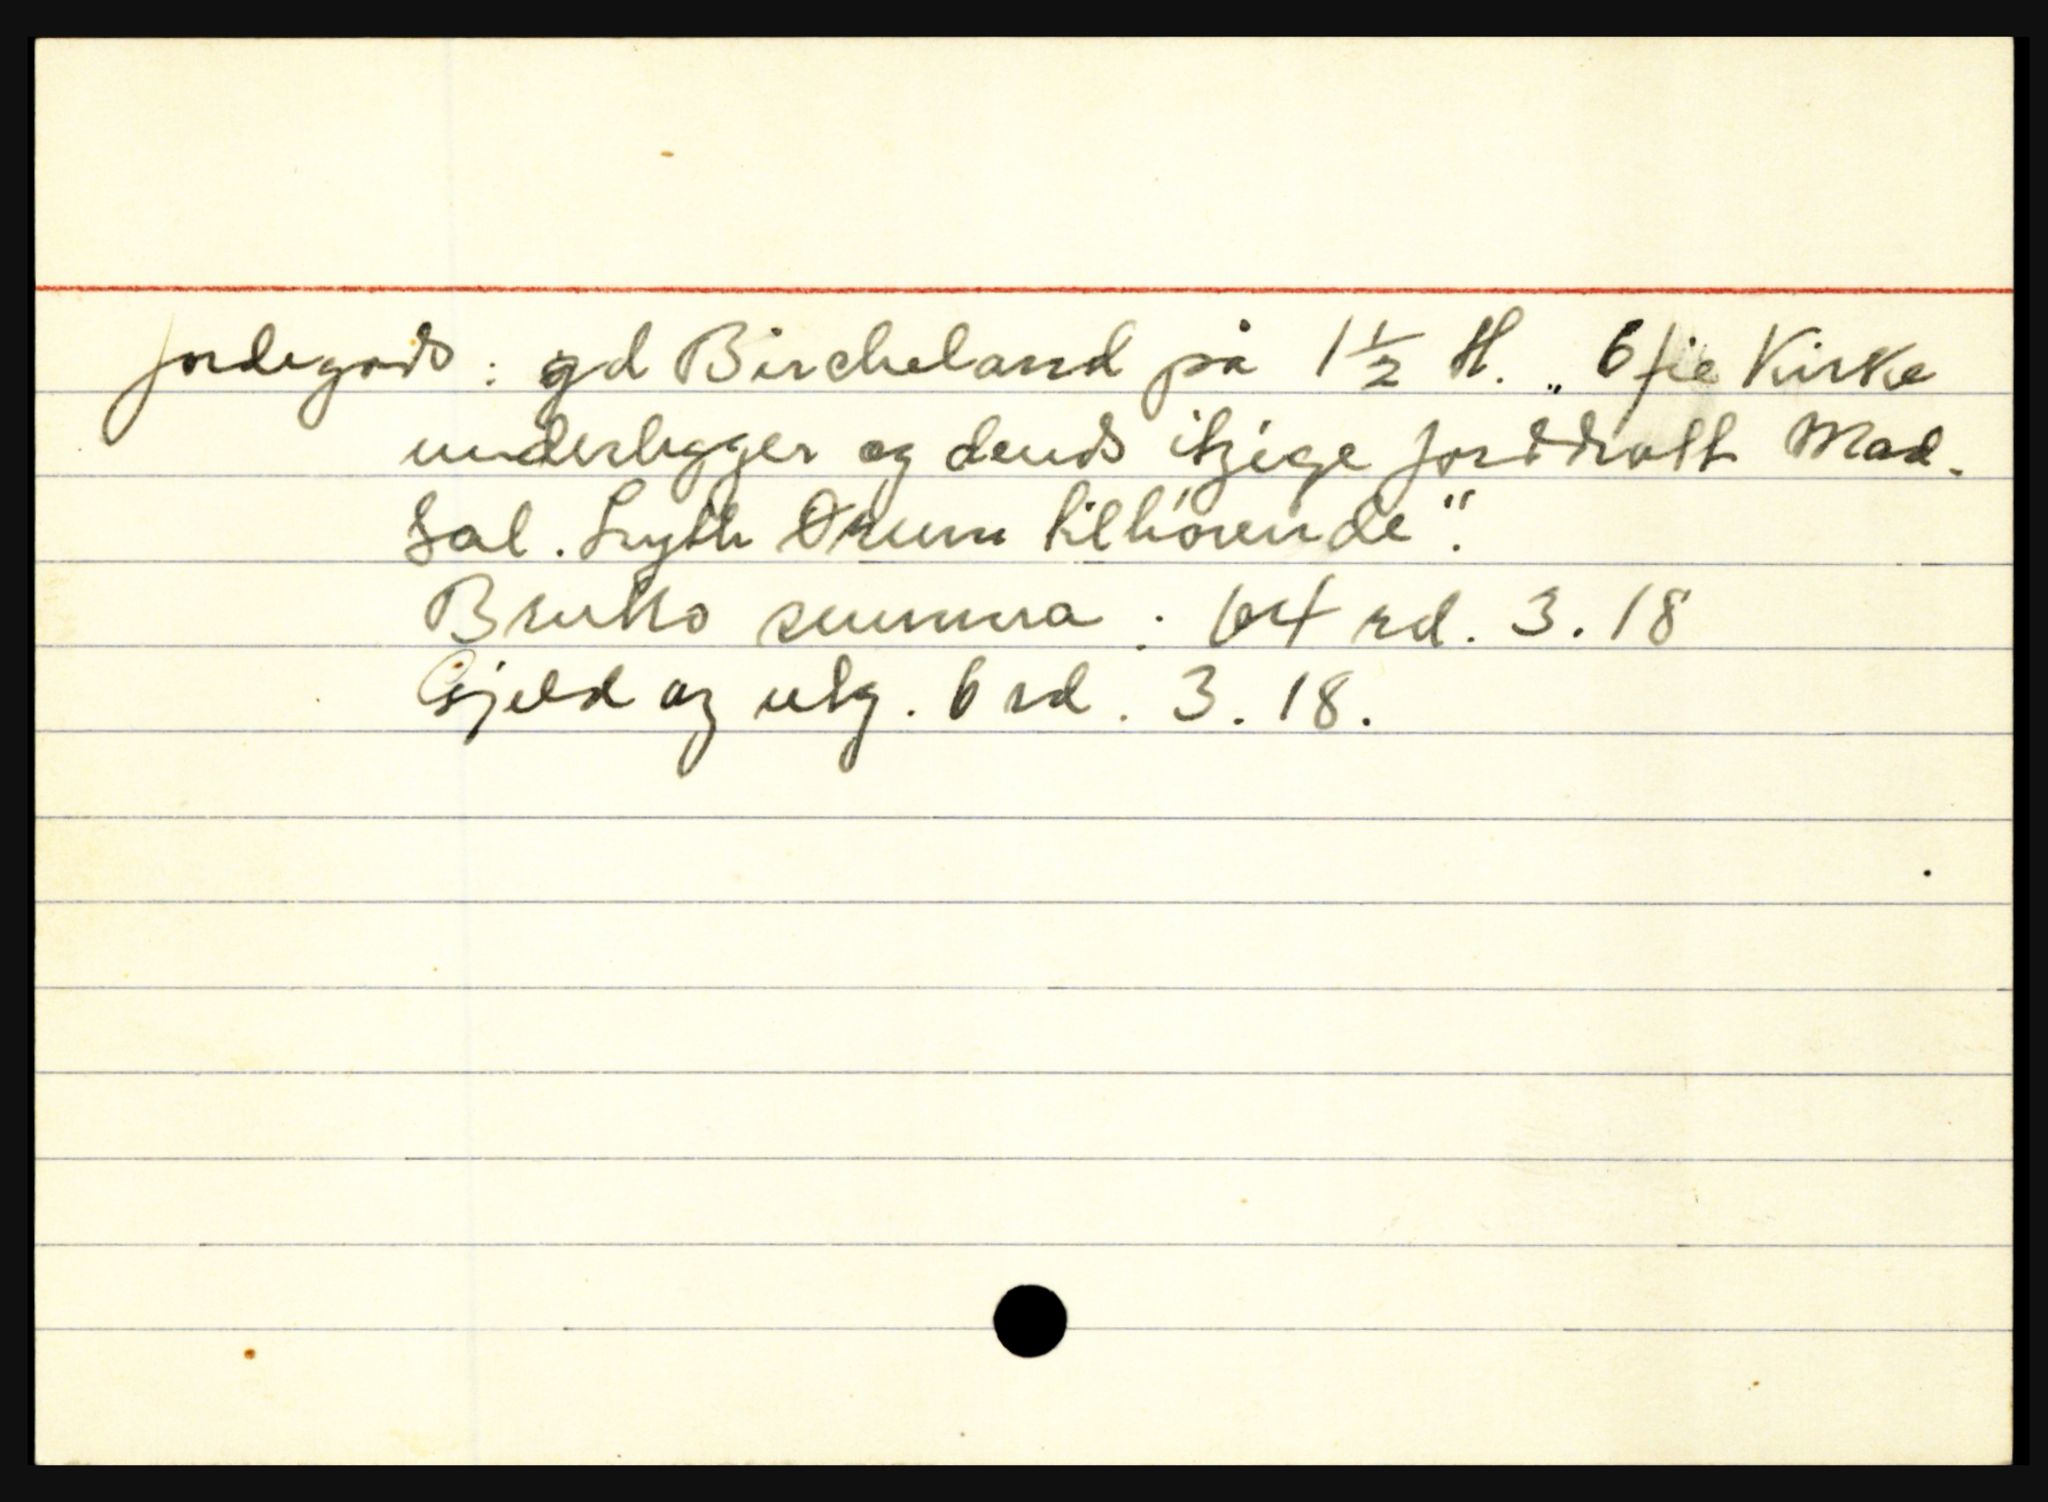 Jordegods : gd Bircheland på 1 1/2 H. „ 6 fie Kirke
underligger og dends itzige jorddrott Mad.
Sal. Lyth Drum tilhörende".
Brutto summa : 64 rd. 3. 18
Gjeld og utg. 6 rd. 3. 18.